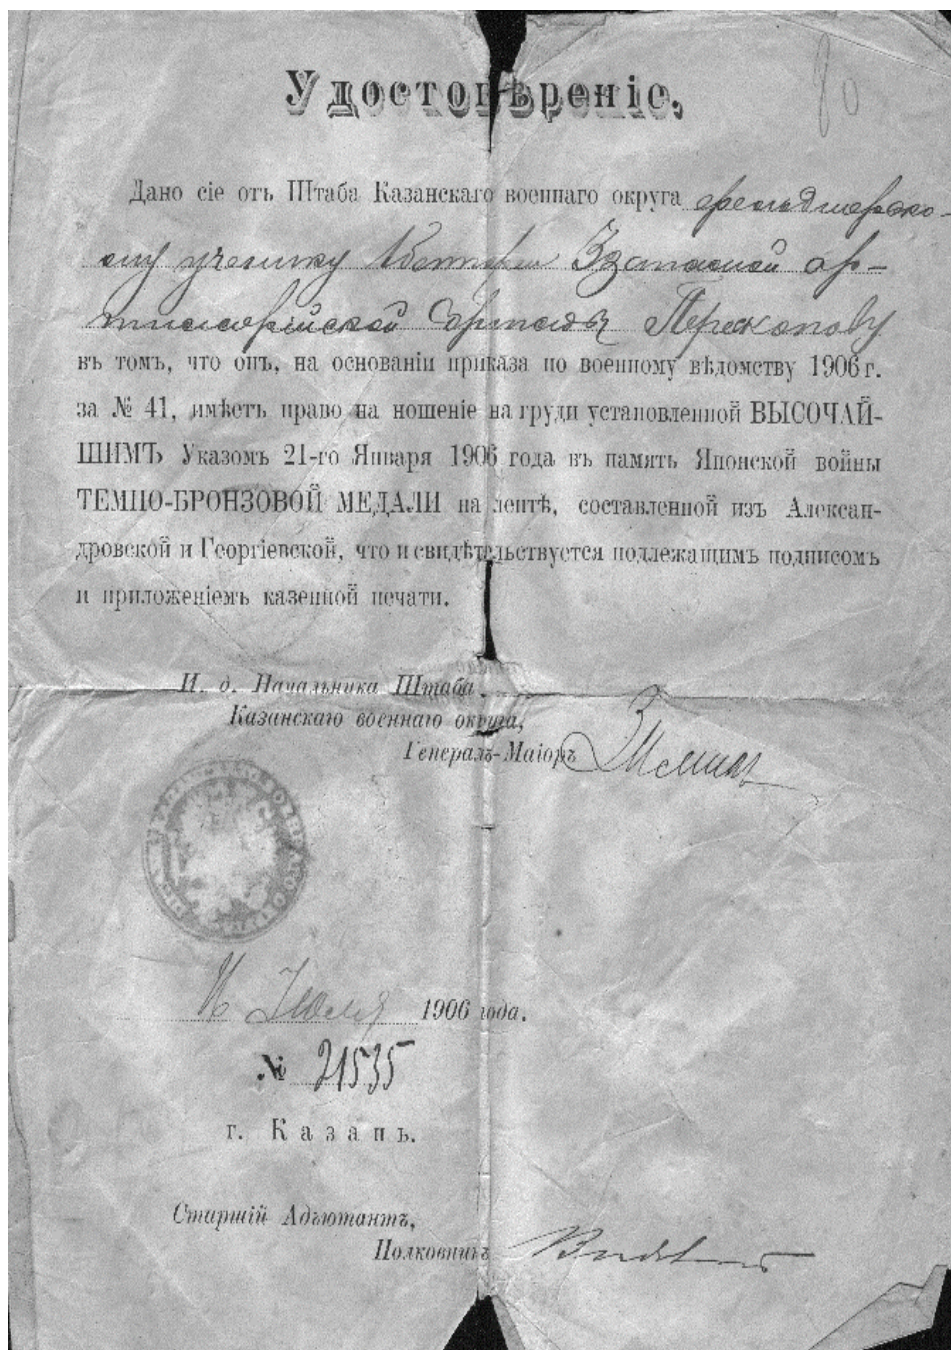 Удостовѣреніе,
80
Дано сіе отъ Штаба Казанскаго военнаго округа фельдшерско-
му ученику 3 запасной ар-
тиллерійской бригады Перекопову
въ томъ, что онъ, на основаніи приказа по военному вѣдомству 1906 г.
за № 41, имѣетъ право на ношеніе на груди установленной ВЫСОЧАЙ-
ШИМЪ Указомъ 21-го Января 1906 года въ память Японской войны
ТЕМНО-БРОНЗОВОЙ МЕДАЛИ на лентѣ, составленной изъ Алексан-
дровской и Георгіевской, что и свидѣтельствуется подлежащимъ подписомъ
и приложеніемъ казенной печати.
И. д. Начальника Штаба
Казанскаго военнаго округа,
Генералъ-Маіоръ
Іюля 1906 года.
№ 21535
г. Казань.
Старшій Адъютантъ,
Полковникъ